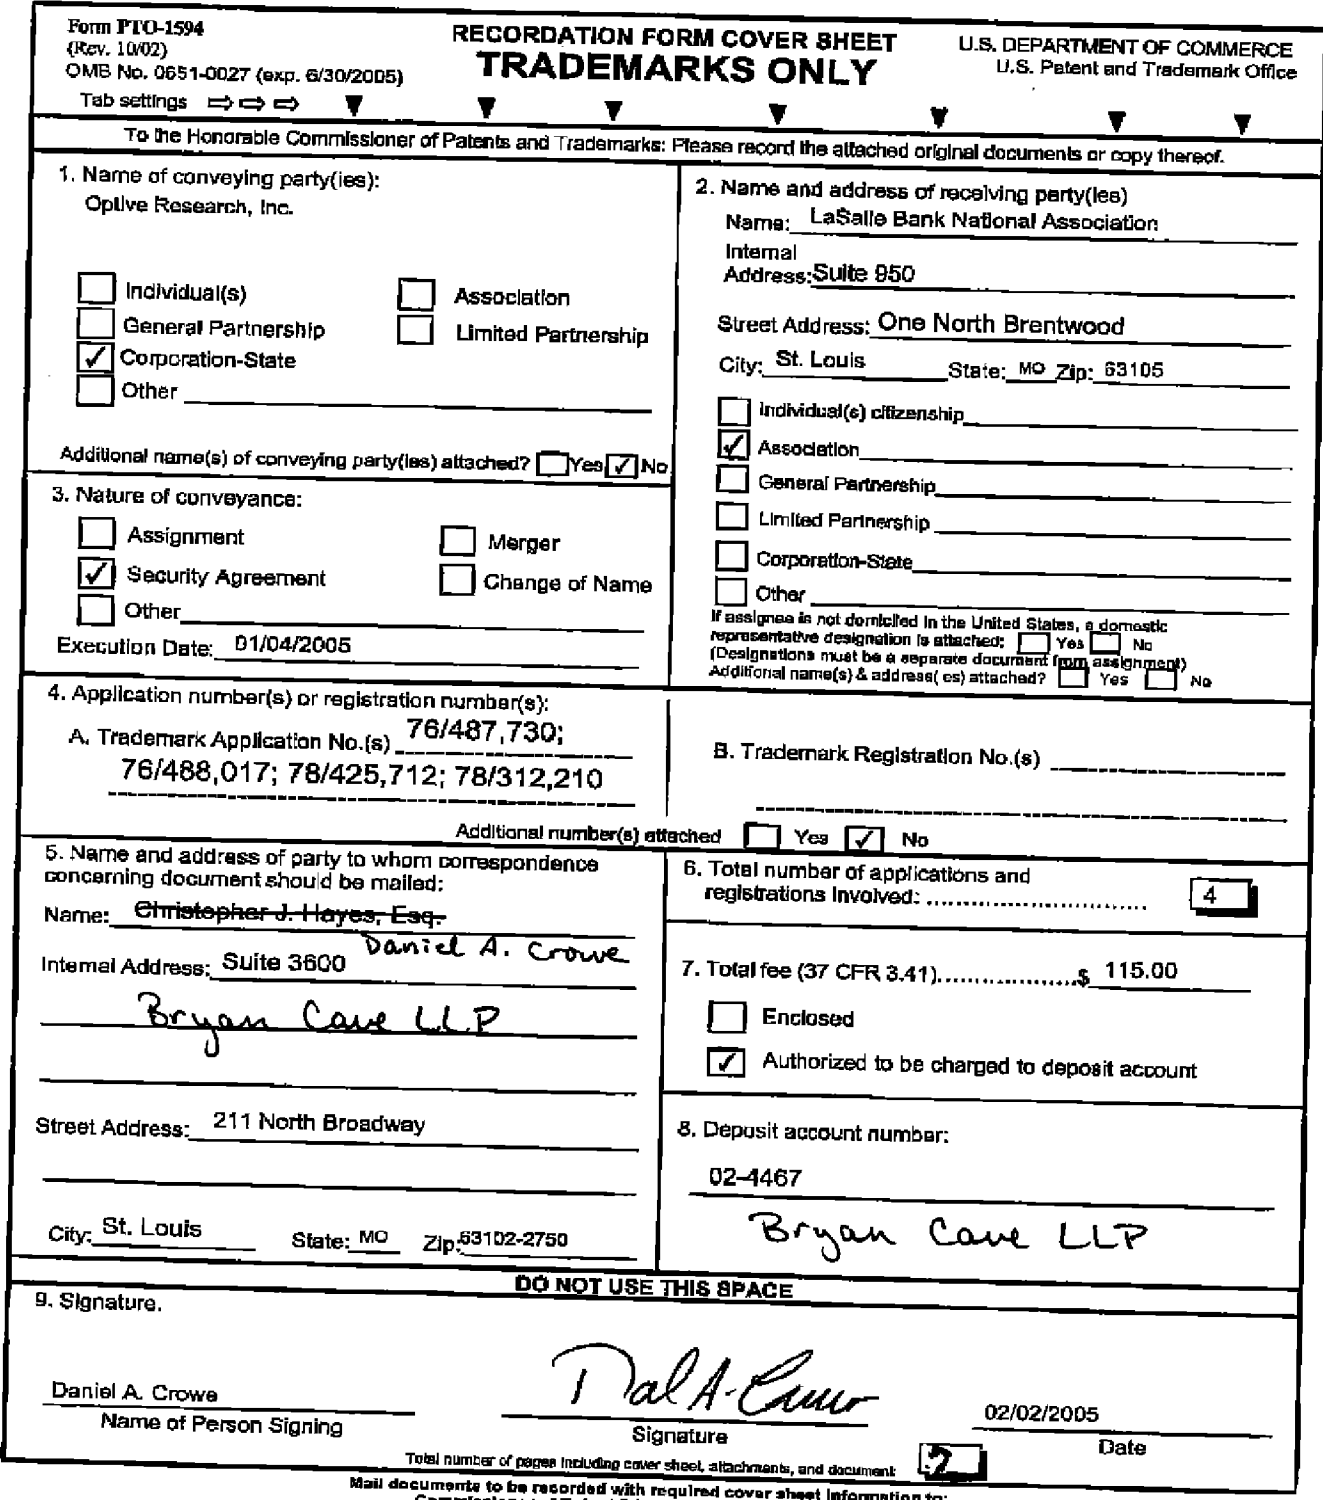 Form PTO-1594
(Rev. 10/02)
OMB No. 0651-0027 (exp. 6/30/2005)
Tab settings
RECORDATION FORM COVER SHEET
TRADEMARKS ONLY
U.S. DEPARTMENT OF COMMERCE
U.S. Patent and Trademark Office
To the Honorable Commissioner of Patents and Trademarks: Please record the attached original documents or copy thereof.
1. Name of conveying party(ies):
Optive Research, Inc.
Individual(s)
Association
General Partnership
Limited Partnership
✓ Corporation-State
Other
Additional name(s) of conveying party(ies) attached? Yes ✓ No
2. Name and address of receiving party(ies)
Name: LaSalle Bank National Association
Internal
Address: Suite 950
Street Address: One North Brentwood
City: St. Louis State: MO Zip: 63105
Individual(s) citizenship
✓ Association
General Partnership
Limited Partnership
Corporation-State
Other
If assignee is not domiciled in the United States, a domestic
representative designation is attached: Yes No
(Designations must be a separate document from assignment)
Additional name(s) & address( es) attached? Yes No
3. Nature of conveyance:
Assignment
Merger
✓ Security Agreement
Change of Name
Other
Execution Date: 01/04/2005
4. Application number(s) or registration number(s):
A. Trademark Application No.(s) 76/487,730;
76/488,017; 78/425,712; 78/312,210
B. Trademark Registration No.(s)
Additional number(s) attached Yes ✓ No
5. Name and address of party to whom correspondence
concerning document should be mailed:
Name: Christopher J. Hayes, Esq.
Daniel A. Crowe
Internal Address: Suite 3600
Bryan Cave LLP
Street Address: 211 North Broadway
City: St. Louis State: MO Zip: 63102-2750
6. Total number of applications and
registrations involved: 4
7. Total fee (37 CFR 3.41) $ 115.00
Enclosed
✓ Authorized to be charged to deposit account
8. Deposit account number:
02-4467
Bryan Cave LLP
DO NOT USE THIS SPACE
9. Signature.
Daniel A. Crowe
Name of Person Signing
Signature
02/02/2005
Date
Total number of pages including cover sheet, attachments, and document:
Mail documents to be recorded with required cover sheet information to: